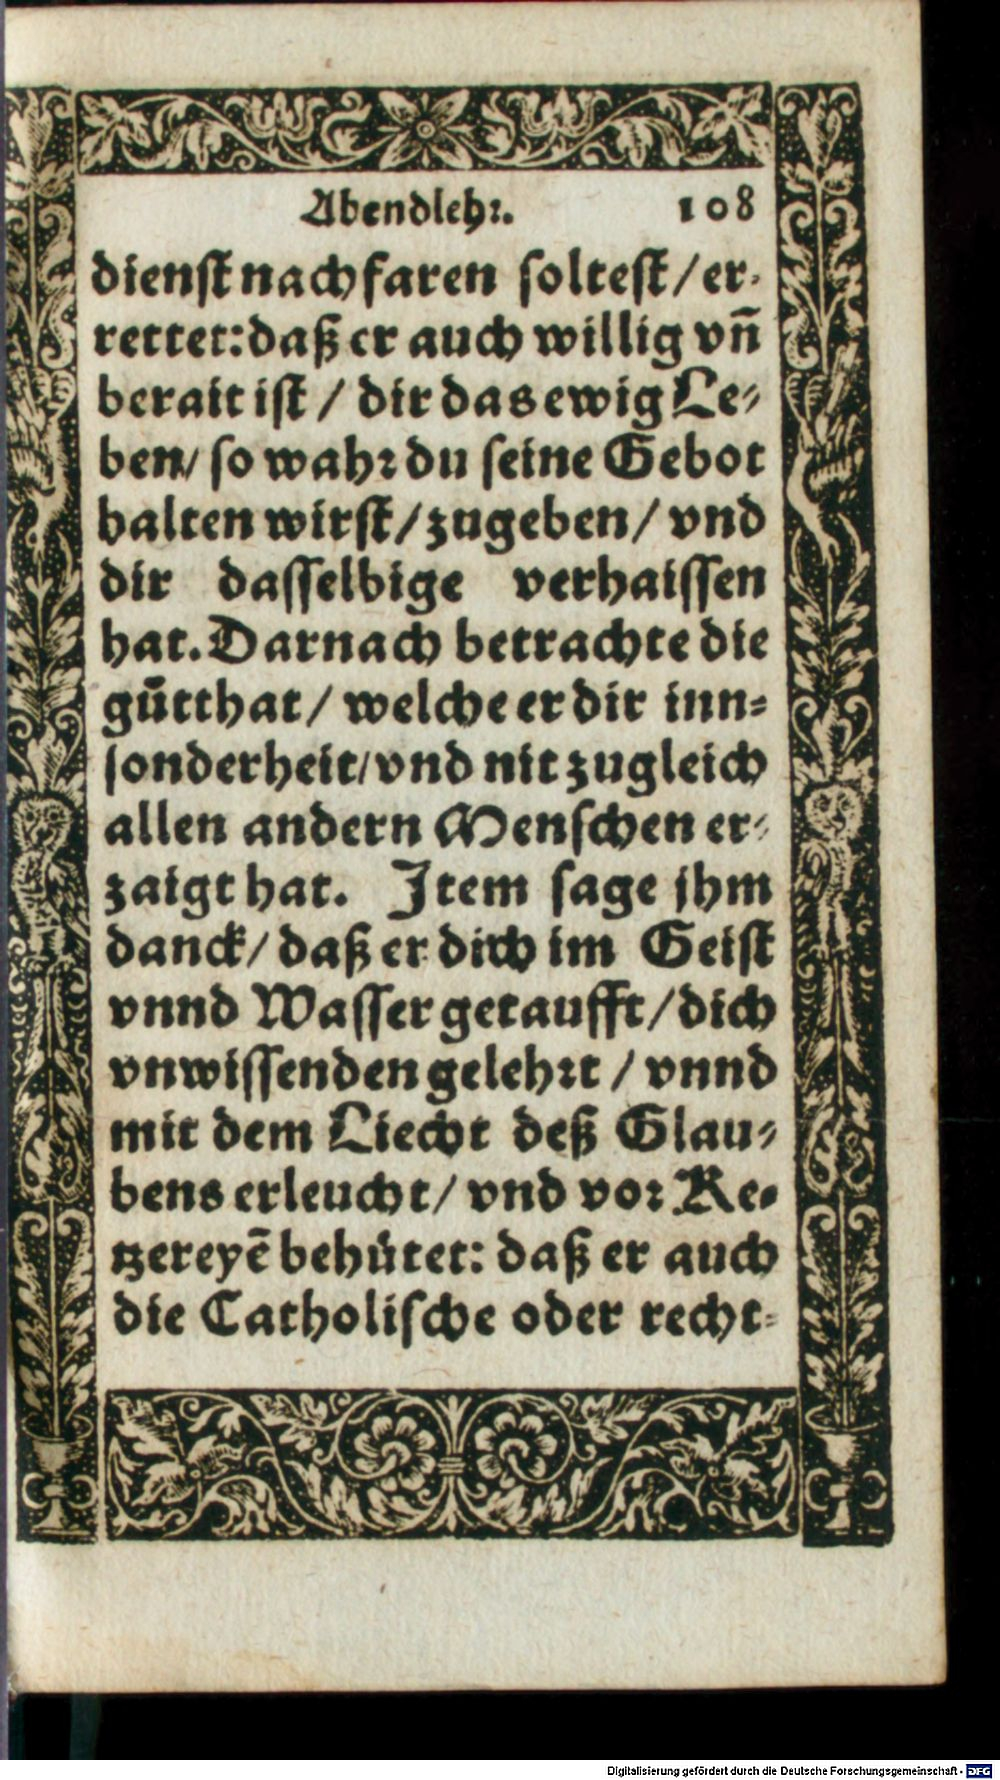 Abendlehr. 108
dienst nach faren soltest / er-
rettet: daß er auch willig vn̄
berait ist / dir das ewig Le-
ben / so wahr du seine Gebot
halten wirst / zugeben / vnd
dir dasselbige verhaissen
hat. Darnach betrachte die
gůtthat / welche er dir inn-
sonderheit / vnd nit zugleich
allen andern Menschen er-
zaigt hat. Item sage jhm
danck / daß er dich im Geist
vnnd Wasser getaufft / dich
vnwissenden gelehrt / vnnd
mit dem Liecht deß Glau-
bens erleucht / vnd vor Ke-
tzereyē behütet: daß er auch
die Catholische oder recht-
Digitalisierung gefördert durch die Deutsche Forschungsgemeinschaft - DFG